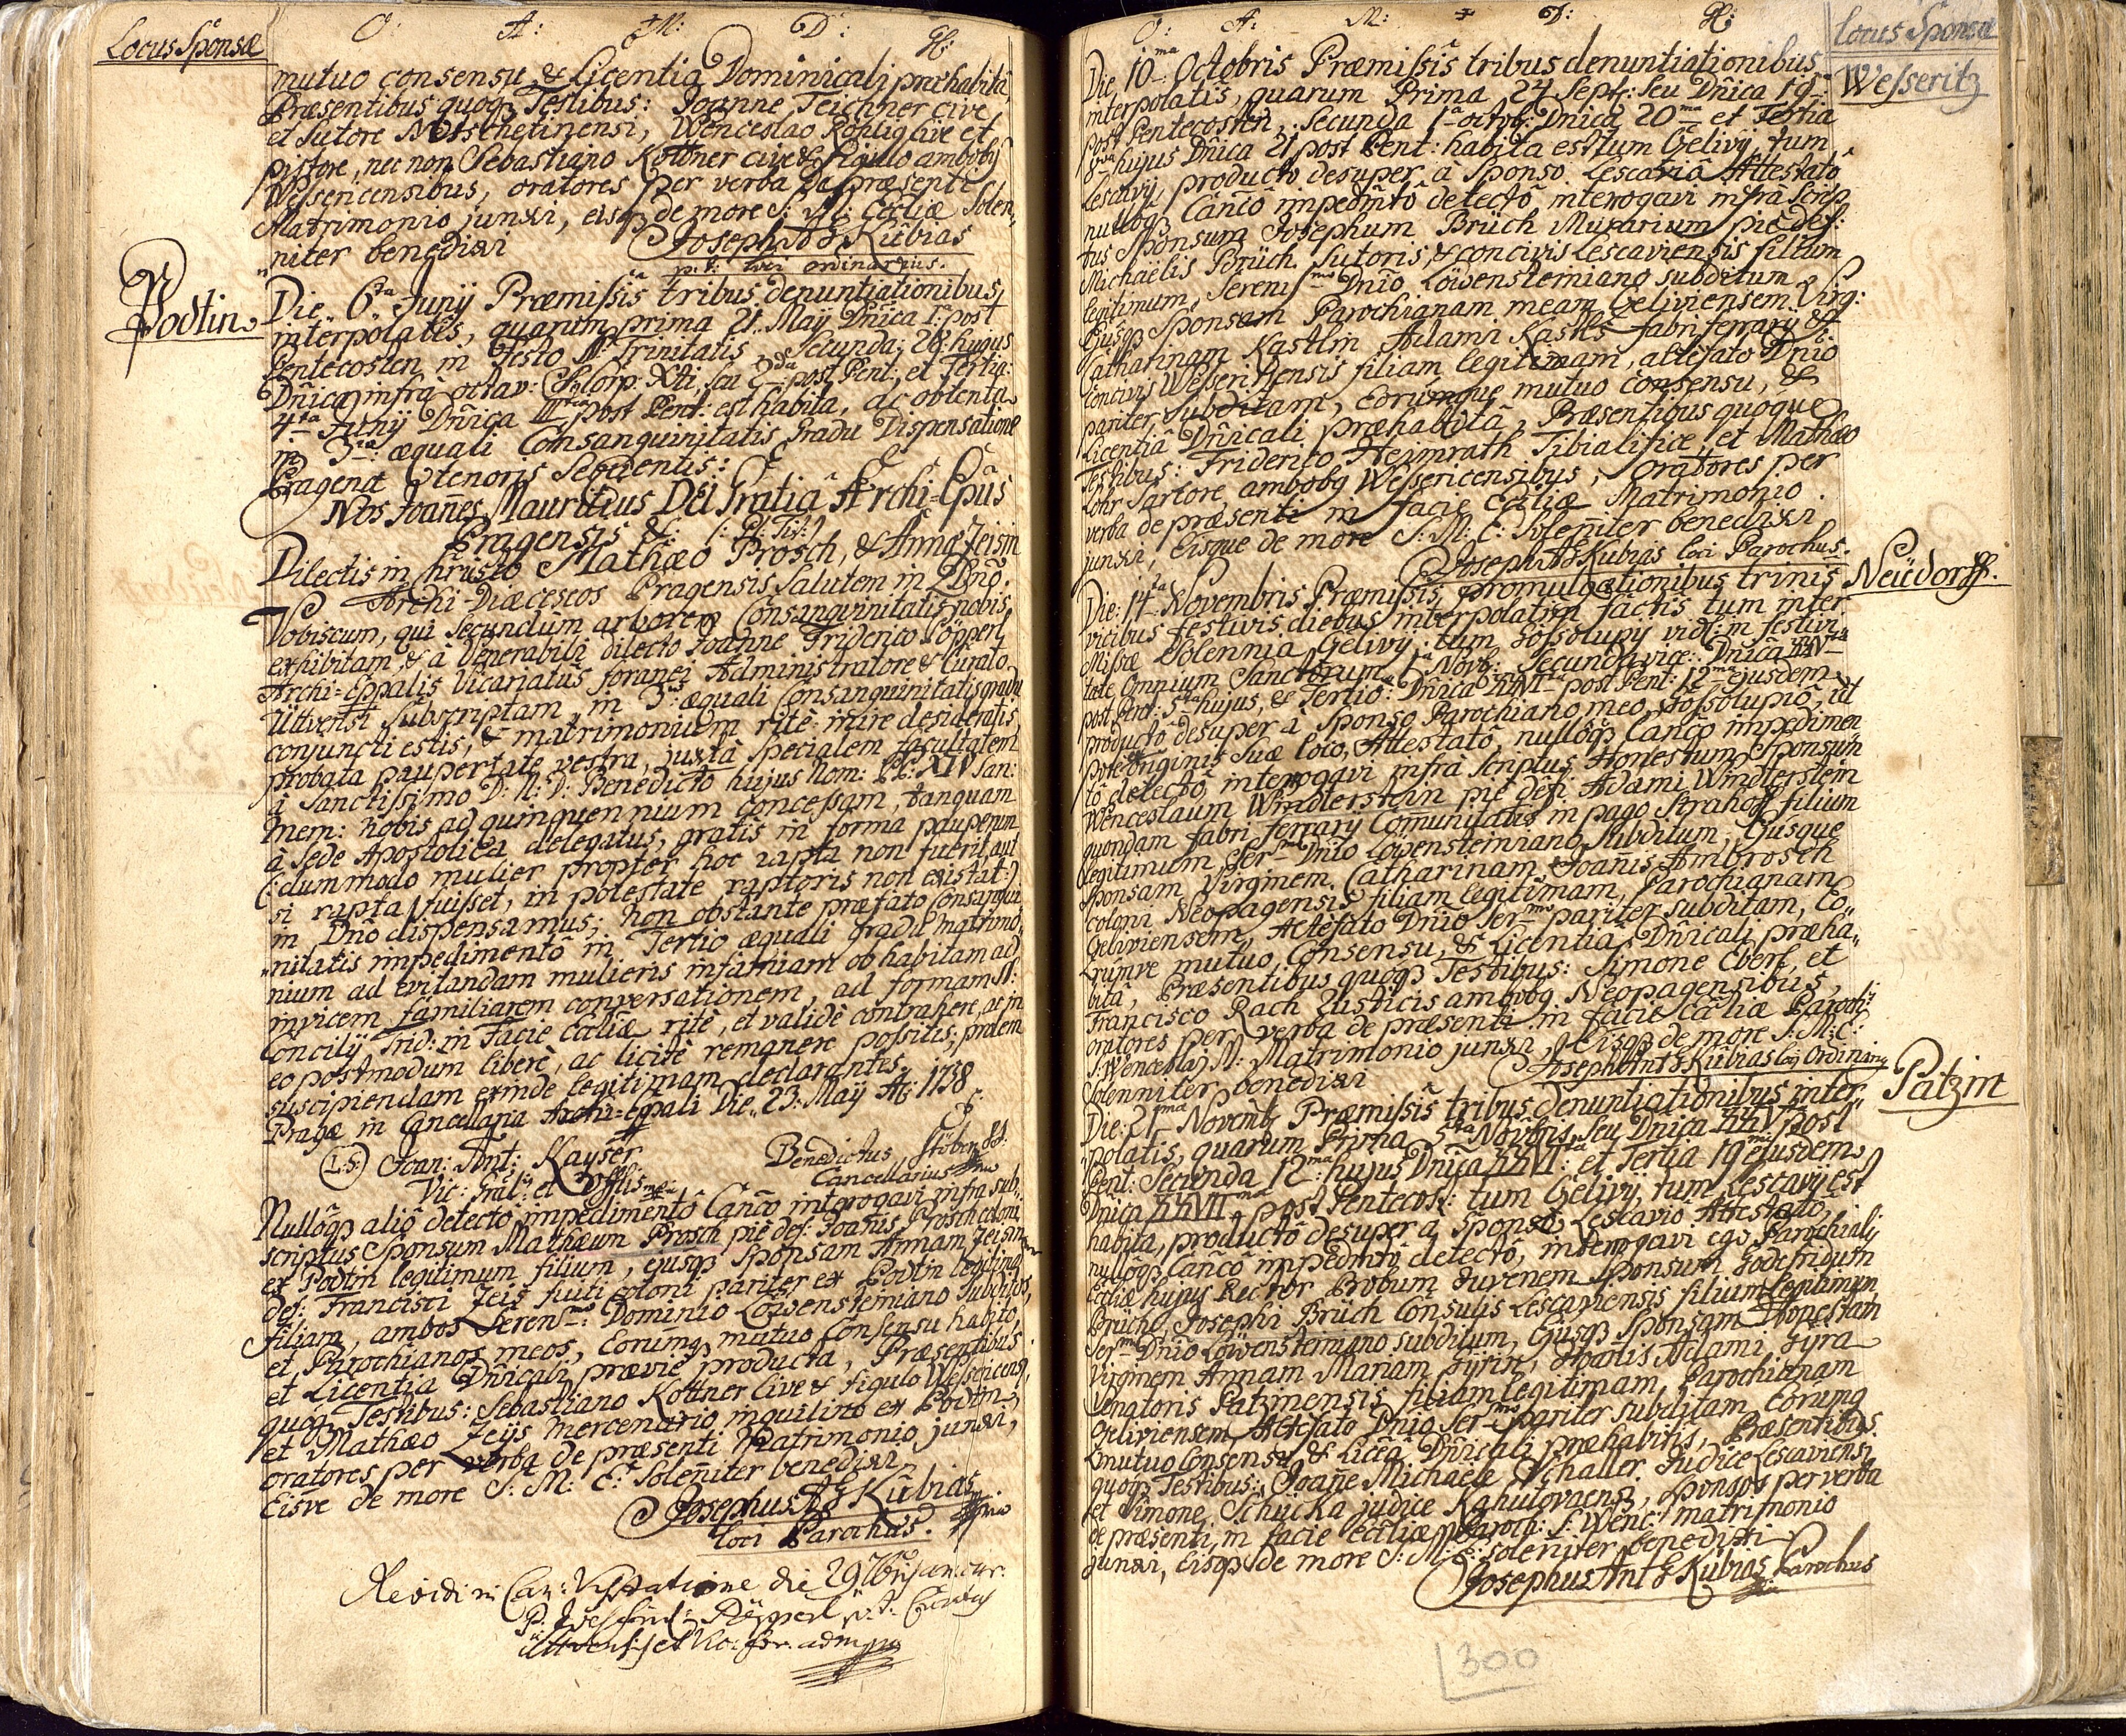 Locus Sponsæ
O: A: M: D: G:
mutuo consensu & Licentia Dominicali præhabitâ,
Præsentibus quoq; Testibus: Joanne Teichner cive
et Sutore Netschetinensi, Wenceslao Rohlig cive et
pistore, nec non Sebastiano Kottner cive & figulo ambobq
Wessericensibus, oratores per verba de præsenti
Matrimonio junxi, eisq; de more S: M: Eccliæ Solen,,
,,niter benedixi Joseph Kubias
p. t. loci ordinarius.
Podtin
Die 6ta Junij Præmissis tribus denuntiationibus,
interpolatis, quarum prima 21 Maij Dnica 1. post
Pentecosten in Festo SS. Trinitatis Secunda; 28 hujus
Dnica infra octav: SS Corp: Xti, seu 2da post Pent:, et Tertia
4ta Junij Dnica IIItia post Pent: est habita, ac obtenta
in 3tio æquali Consanguinitatis Gradu Dispensatione
Pragena tenoris Sequentis:
Nos Joannes Mauritius DEI Gratiâ Archi-Epûs
Pragensis &c: (: Pl: Tit:)
Dilectis in Christo Mathæo Prosch, & Annæ Zeisin
Archi-Diæceseos Pragensis Salutem in Dno.
Vobiscum, qui Secundum arborem Consanguinitatis nobis
exhibitam, & à Venerabili dilecto Joanne Friderico Pöpperl
Archi-Eppalis Vicariatus foranei Administratore & Curato
Uttvensi Subscriptam, in 3o æquali Consanguinitatis gradu
conjuncti estis, & matrimonium ritè inire desideratis
probata paupertate vestra, juxtà specialem facultatem
à Sanctissimo D: N: D: Benedicto hujus Nom: PP: XIV San:
mem: nobis ad quinquennium concessam, tanquam
à Sede Apostolica delegatus, gratis in forma pauperum
(: dummodo mulier propter hoc rapta non fuerit, aut
si rapta fuisset, in potestate raptoris non existat :)
in Dno dispensamus; non obstante præfato Consangui
,,nitatis impedimentô in Tertio æquali gradu matrimo,,
nium ad evitandam mulieris infamiam ob habitam ad
invicem familiarem conversationem, ad formam SS:
Concilij Trid: in Facie Eccliæ ritè, et validè contrahere, ac in
eo postmodum liberè, ac licitè remanere possitis; prolem
suscipiendam exinde legitimam declarantes.
Pragæ in Cancellaria Archi-Eppali Die 23: Maij Ao: 1758
(L:S:) Joan: Ant: Kayser Benedictus Stöber
Vic: Gral: et Offlis mp Cancellarius
Nullôq; aliô detectô impedimentô Canco interogavi infra sub,,
scriptus Sponsum Mathæum Prosch piè def: Joanis Prosch coloni
ex Podtin legitimum filium, ejusq; Sponsam Annam Zeisin
def: Francisci Zeis fuiti coloni pariter ex Podtin legitima
filiam, ambos Seren: Dominio Löwensteiniano Subditos,
et Parochianos meos, Eorumq; mutuo Consensu habito,
et Licentia Dnicali præviè producta, Præsentibus
quoq; Testibus: Sebastiano Kottner Cive & figulo Wessericensi,
et Mathæo Zeijs mercenario inquilino ex Podtin
oratores per verba de præsenti Matrimonio junxi,
Eisve de more S: M: E: Soleniter benedixi
Josephus Kubias
loci Parochus.
Revidi in Can: Visitatione die 29
Locus Sponsæ
O: A: M: D: G:
Wesseritz
Die 10ma Octobris Præmissis tribus denuntiationibus
interpolatis, quarum Prima 24 Sept: seu Dnica 19
post Pentecosten, Secunda 1a octob: Dnica 20ma et Tertia
8va hujus Dnica 21 post Pent: habita est tum Gelivij, tum
Lescavij, producto desuper à Sponso Lescavia Attestato
nullôq; Cancô impedmtô detectô interogavi infrà scrip
tus Sponsum Josephum Brüch Murarium piè def:
Michaelis Brüch Sutoris, & concivis Lescaviensis filium
legitimum, Serenismo Dnio Löwensteiniano subditum
Ejusq; Sponsam Parochianam meam Geliviensem Virg:
Catharinam Kastlin Adami Kastls fabri ferrarij &
Concivis Wesseritzensis filiam legitimam, altefato Dnio
pariter subditam, Eorumque mutuo Consensu, &
Licentia Dnicali præhabitâ, Præsentibus quoque
Testibus: Friderico Heimrath Tibialifice, et Mathæo
Lohr Sartore ambobq Wessericensibus, oratores per
verba de præsenti in facie Eccliæ Matrimonio
junxi, Eisque de more S: M: E: Soleniter benedixi
Joseph Kubias loci Parochus.
Neüdorff.
Die 14ta Novembris Præmissis, promulgationibus trinis
vicibus festivis diebus interpolatim factis tum inter
Missæ Solennia Gelivij, tum Gossolupij vidl: in festivi
tate Omnium Sanctorum 1a Novb: Secunda vice: Dnica XXVta
post Pent: 5ta hujus, & Tertiô: Dnica XXVIta post Pent: 12ma ejusdem
producto desuper à Sponso Parochiano meo, Gossolupiô, ut
pote originis Suæ loco, Attestatô, nullôq; Cancô impedimen
tô detectô interogavi infrà scriptus Honestum Sponsum
Wenceslaum Windterstein piè def: Adami Windterstein
quondam fabri ferrarij Comunitatis in pago Strahoff filium
legitimum Sermo Dnio Löwensteiniano subditum, Ejusque
Sponsam Virginem Catharinam, Joanis Ambrosch
coloni Neopagensis filiam legitimam, Parochianam
Geliviensem, Altefato Dnio Sermo pariter subditam, Eo,,
rumve mutuo Consensu, & Licentia Dnicali præha,,
bitâ, Præsentibus quoq; Testibus: Simone Eberl, et
Francisco Rach Rusticis ambobq Neopagensibus,
oratores per verba de præsenti in facie Eccliæ Paroch:
S: Wenceslaj M: Matrimonio junxi, Eisq; de more S: M: E:
Solenniter benedixi Joseph Ant Kubias loci Ordinarius
Patzin
Die: 21ma Novemb: Præmissis tribus denuntiationibus inter,,
polatis, quarum Prima 5ta Novbris, seu Dnica XXV post
Pent: Secunda 12ma hujus Dnica XXVIta et Tertia 19 ejusdem
Dnica XXVIIma post Pentecos: tum Gelivij, tum Lescavij est
habita, productô desuper à Sponso Lescavio Attestato,
nullôq; Cancô impedmtô detectô, interrogavi ego Parochialis
Eccliæ hujus Rector Probum Juvenem Sponsum Godefridum
Brüch, Josephi Brüch Consulis Lescaviensis filium legitimum,
Sermo Dnio Löwensteiniano subditum, Ejusq; Sponsam Honestam
Virginem Annam Mariam Zyrin, Adami Zyra
Venatoris Patzinensis filiam legitimam, Parochianam
Geliviensem, Altefato Dnio Sermo pariter subditam, Eorumq
mutuo Consensu & Licea Dnicali præhabitis, Præsentibus
quoq; Testibus: Joane Michaele Schaller Judice Lescaviensi
et Simone Schucka judice Kahutovaensi, Sponsos per verba
de præsenti, in facie Eccliæ Paroch: S: Wenc: matrimonio
junxi, Eisq; de more S: M: E: soleniter benedixi
Josephus Ant Kubias Parochus
300